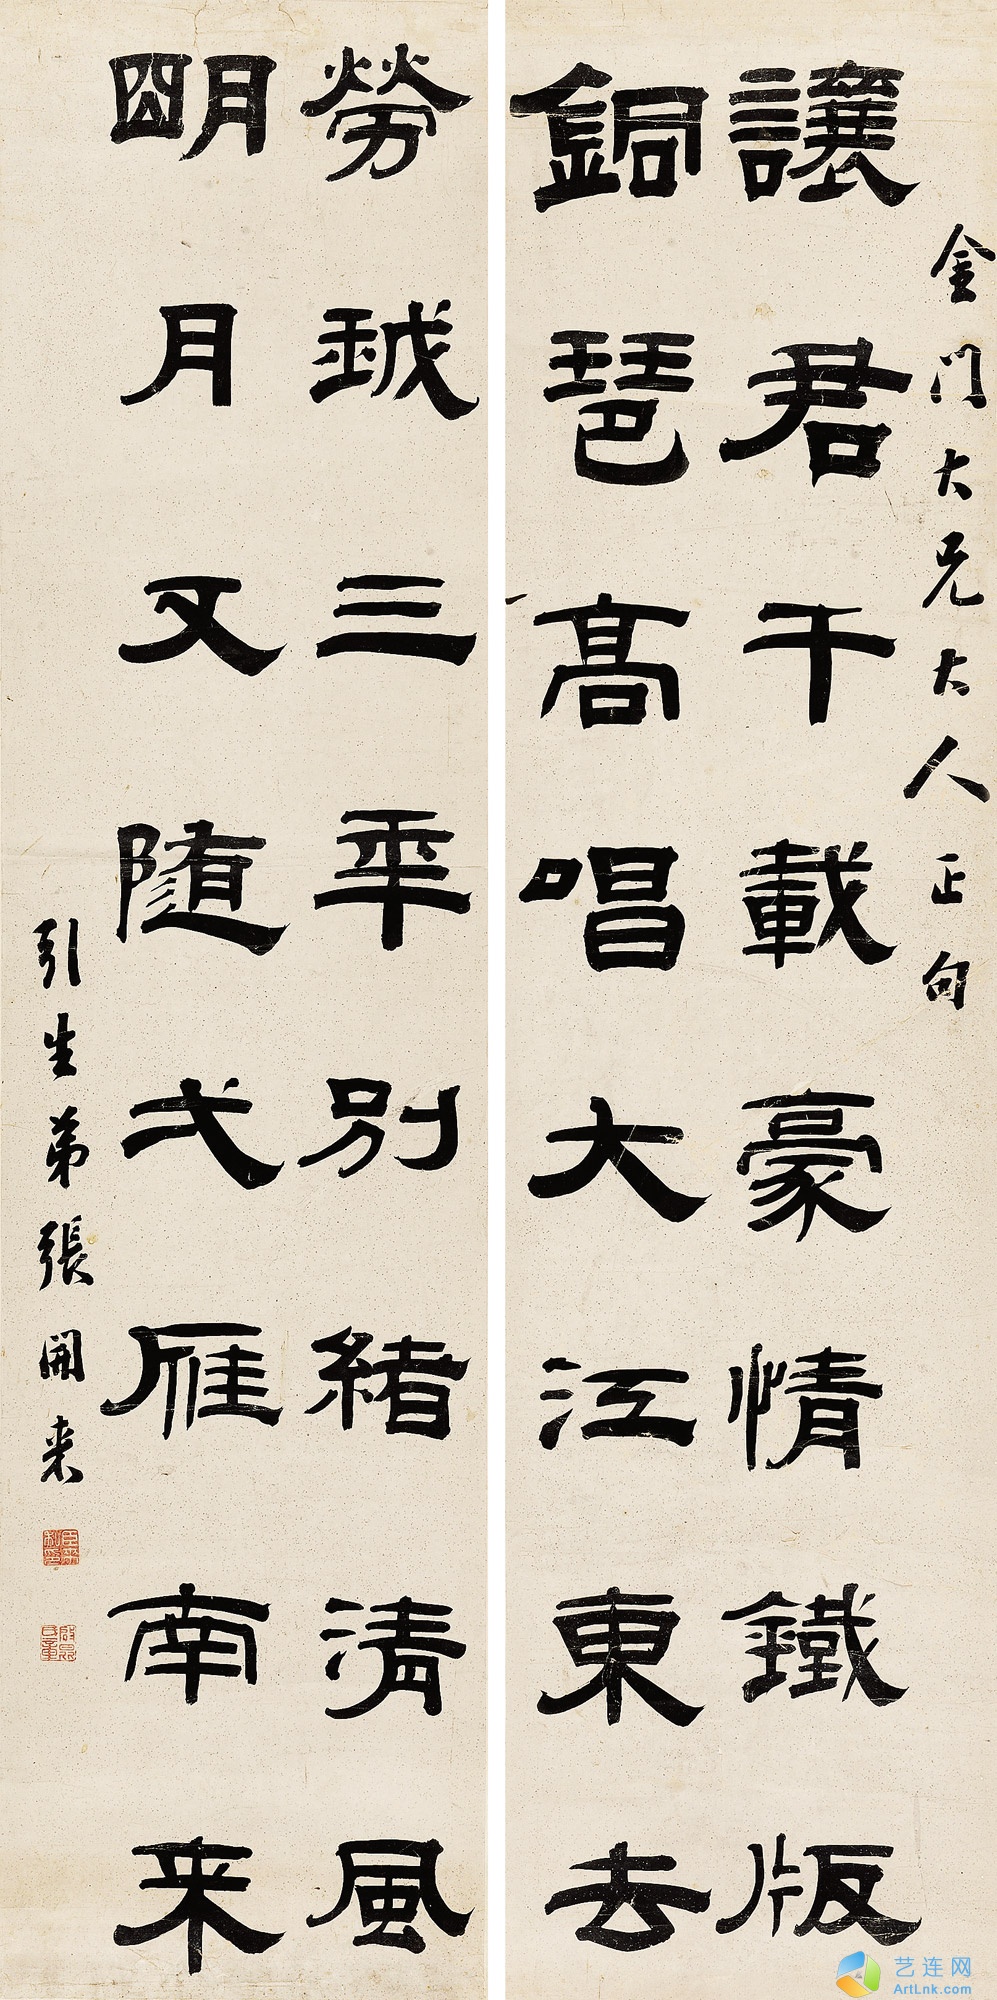 金門大兄大人正句
讓君千載豪情鐵版
銅琶高唱大江東去
勞我三年別緒清風
朙月又随弌雁南来
引生弟張開来
艺连网
ArtLnk.com